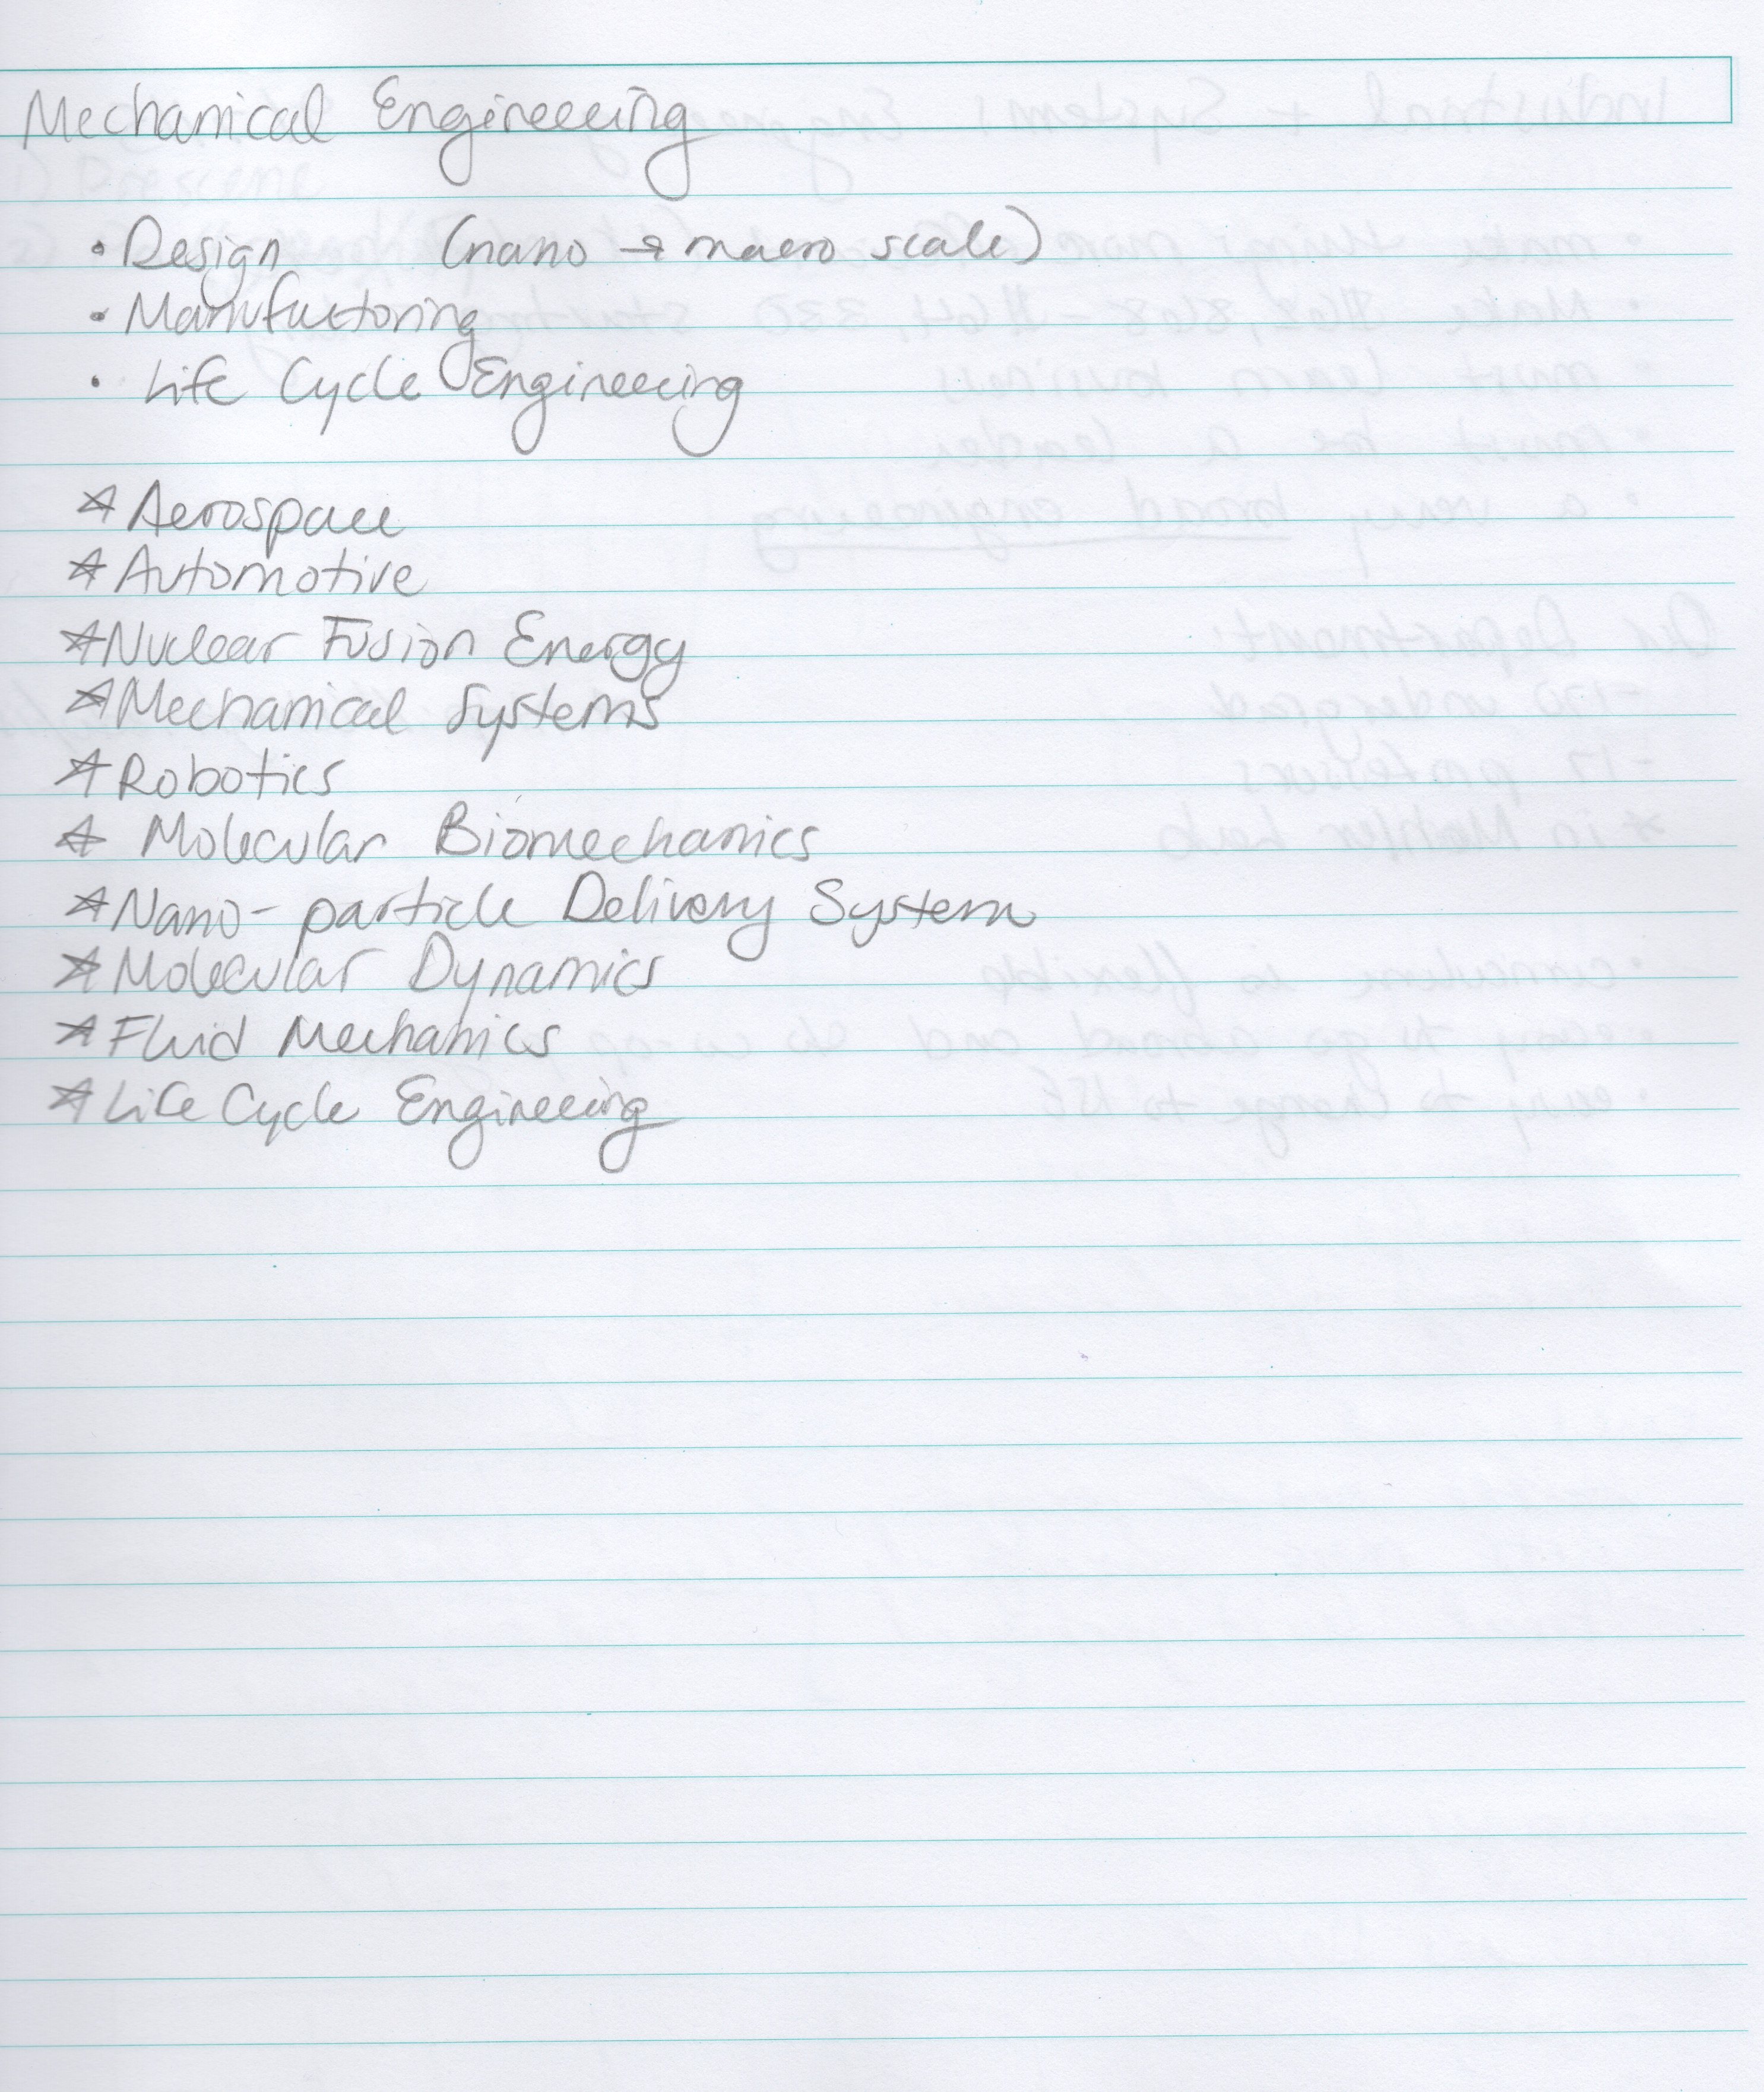 Mechanical Engineering
• Design (nano → macro scale)
• Manufactoring
• Life Cycle Engineering
☆ Aerospace
☆ Automotive
☆ Nuclear Fusion Energy
☆ Mechanical Systems
☆ Robotics
☆ Molecular Biomechanics
☆ Nano-particle Delivery System
☆ Molecular Dynamics
☆ Fluid Mechanics
☆ Life Cycle Engineering